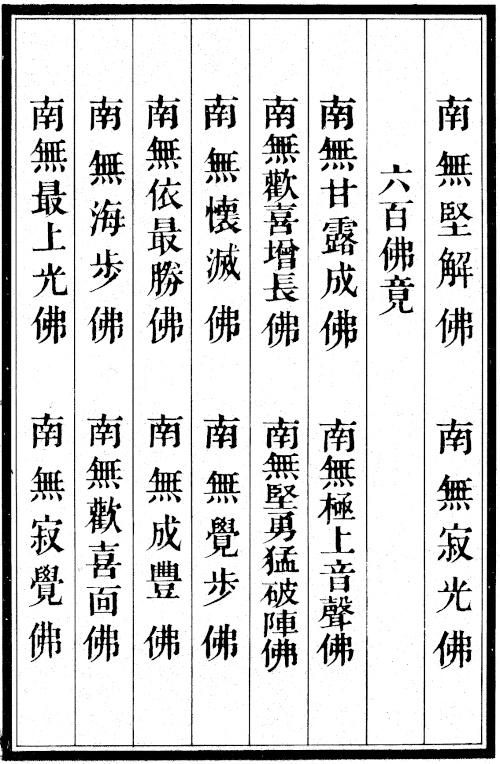 南無堅解佛　南無寂光佛
六百佛竟
南無甘露成佛　南無極上音聲佛
南無歡喜增長佛　南無堅勇猛破陣佛
南無懷滅佛　南無覺步佛
南無依最勝佛　南無成豐佛
南無海步佛　南無歡喜面佛
南無最上光佛　南無寂覺佛